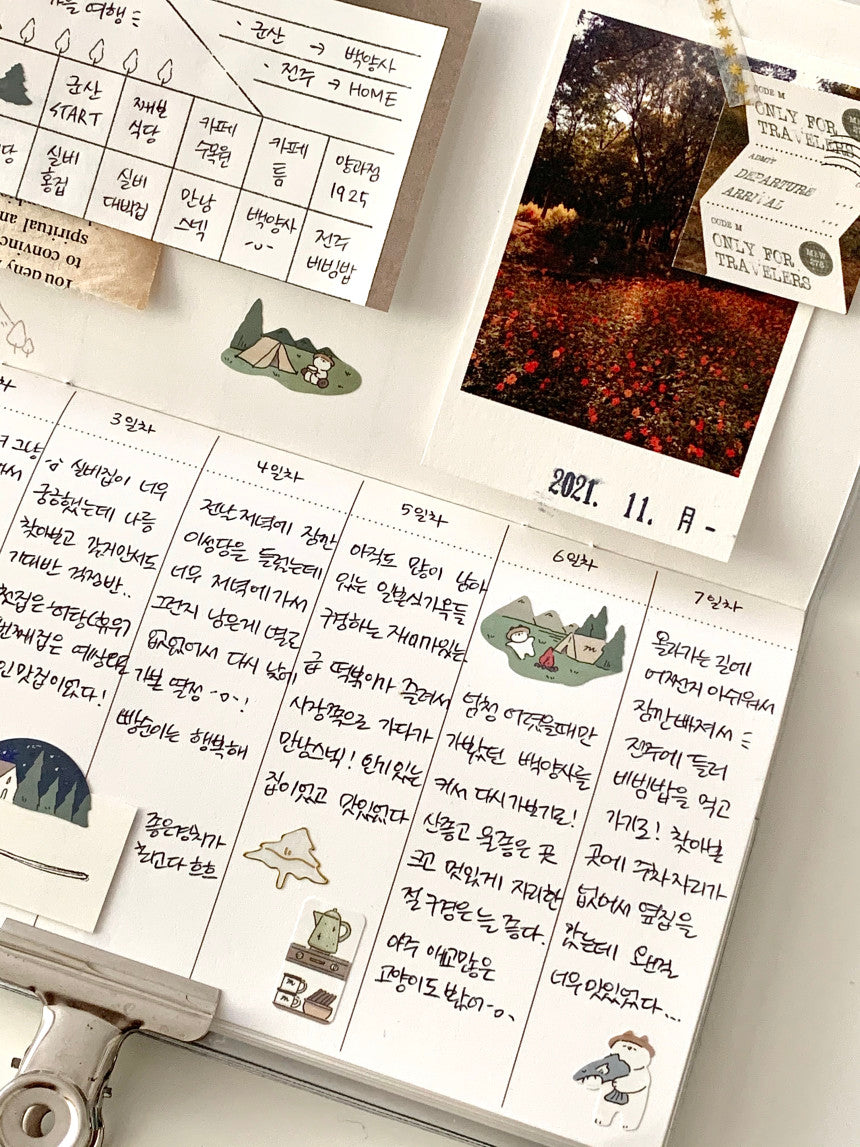 여행
· 군산 → 백양사
· 전주 → HOME
군산
START
째보
식당
카페
수목원
카페
틈
양과점
1925
당
실비
홍집
실비
대박집
만낭
스넥
백양사
전주
비빔밥
You deny
to convinc
spiritual an
CODE M
ONLY FOR
TRAVELERS
ADMIT
DEPARTURE
ARRIVAL
CODE M
ONLY FOR
TRAVELERS
2021. 11. 月 -
그냥
3일차
실비집이 너무
궁금했는데 나름
찾아보고 갔거만서도
기대반 걱정반..
첫집은
번째집은 예상
인 맛집이었다!
4일차
전날 저녁에 잠깐
이성당을 들렀는데
너무 저녁에 가서
그런지 남은게 별로
없었어서 다시 낮에
가본 딸정 -o-!
빵순이는 행복해
좋은 경치가
최고다 흐흐
5일차
아직도 많이 남아
있는 일본식가옥들
구경하는 재미가있는
급 떡볶이가 끌려서
시장쪽으로 가다가
만낭스넥! 인기있는
집이었고 맛있었다
6일차
엄청 어렸을때만
가봤던 백양사를
커서 다시 가보기로!
산좋고 물좋은 곳
크고 멋있게 자리한
절 구경은 늘 좋다.
아주 애교많은
고양이도 봤어-o,
7일차
올라가는 길에
어쩐지 아쉬워서
잠깐 빠져서
전주에 들러
비빔밥을 먹고
가기로! 찾아본
곳에 주차자리가
없어서 옆집을
갔는데 완전
너무 맛있었다...